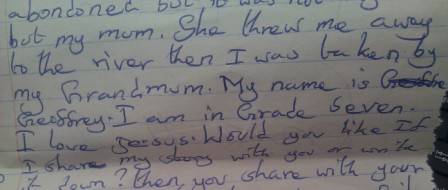 abondoned but it was not
but my mum. She threw me away
to the river then I was taken by
my Grandmum. My name is
Geoffrey. I am in Grade Seven.
I love Jesus. Would you like If
I share my story with you or write
it down? Then, you share with your